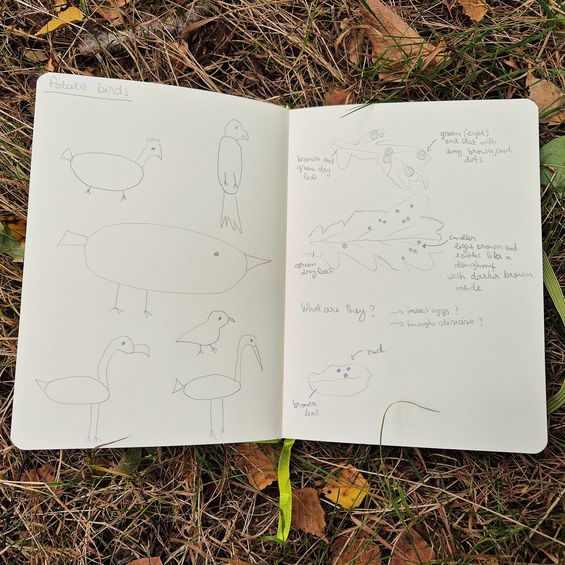 Potato birds
green (light)
and flat with
tiny brown/red
dots
brown and
green dry
leaf
smaller
light brown and
looks like a
doughnut
with darker brown
inside
green
dry leaf
What are they?
→ insect eggs?
→ funghi disease?
red
brown
leaf